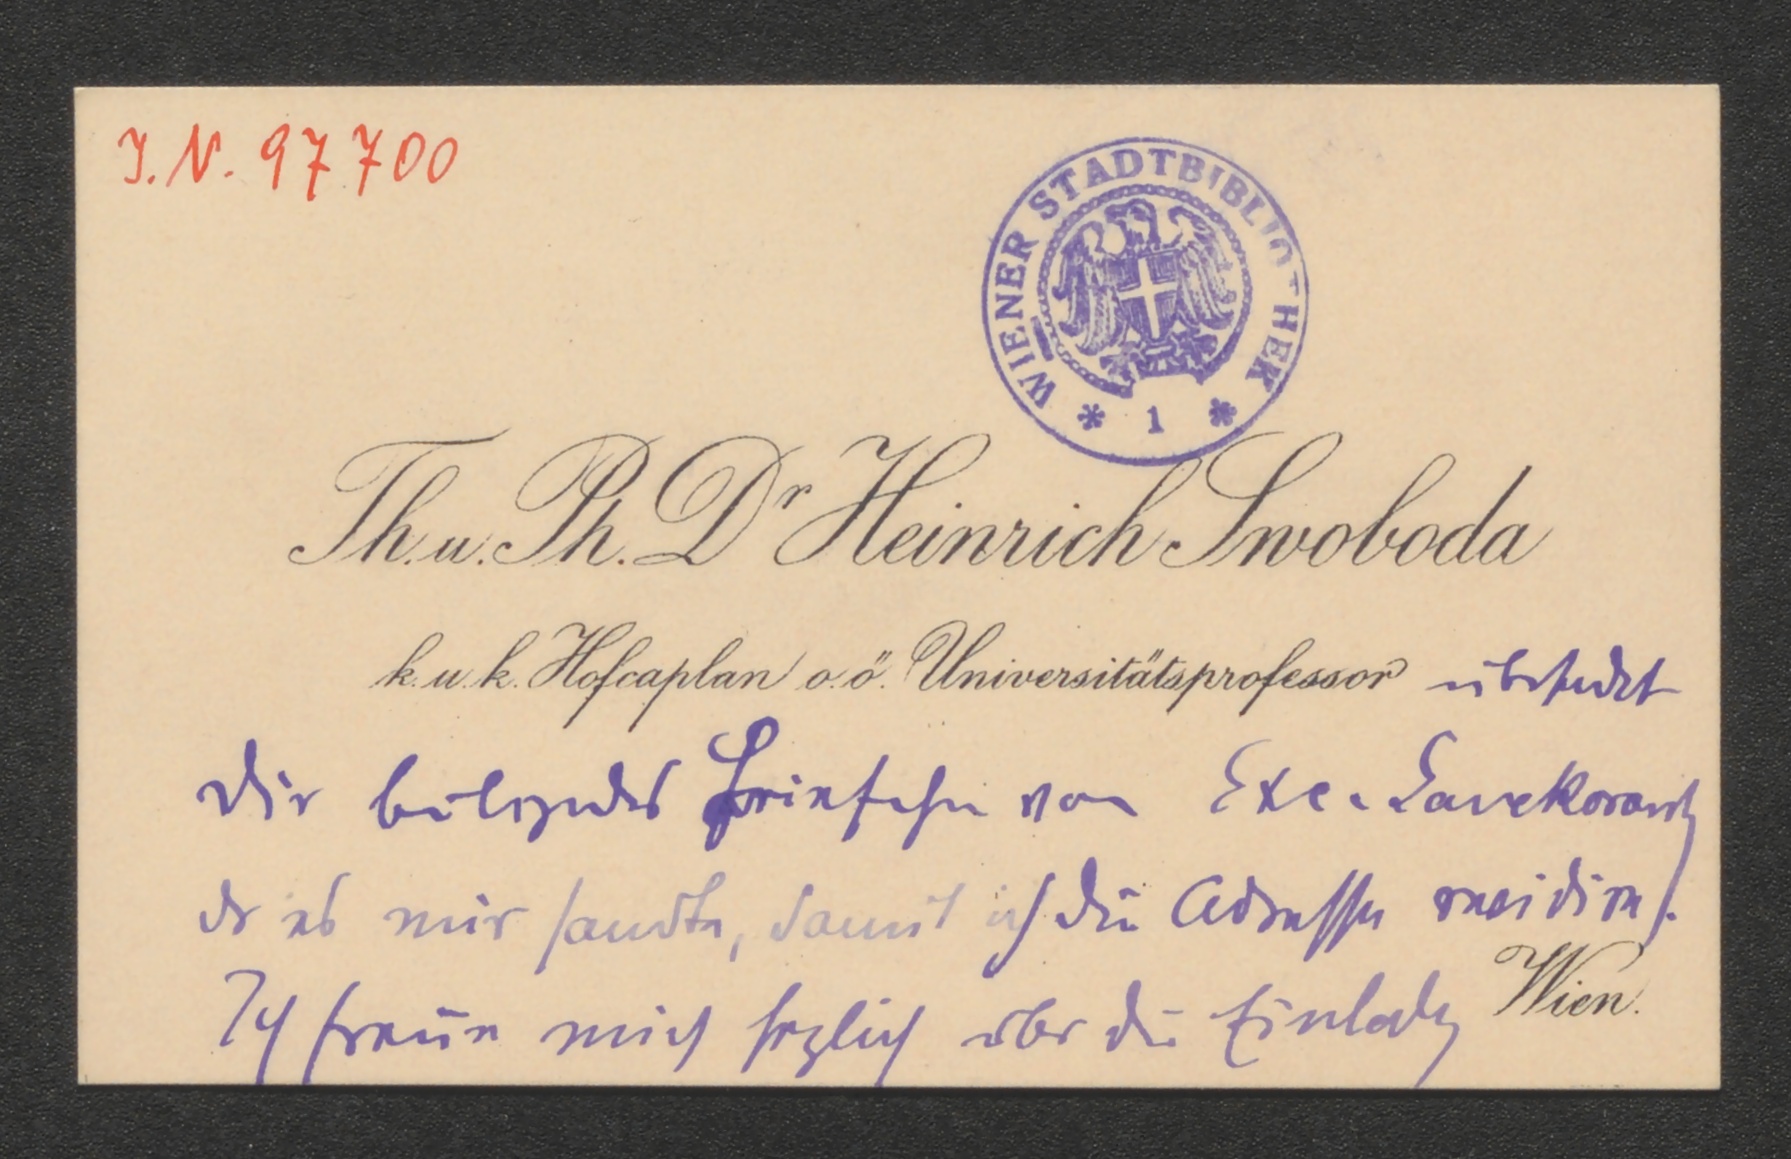 I. N. 97700
WIENER STADTBIBLIOTHEK
* 1 *
Th. u. Ph. Dr Heinrich Swoboda
k. u. k. Hofcaplan o. ö. Universitätsprofessor übersendet
Dir beiliegendes von Exc. Lanckoronsky
der es mir sandte, damit ich die Adresse revidire.
Wien.
Ich freue mich herzlich über die Einladg